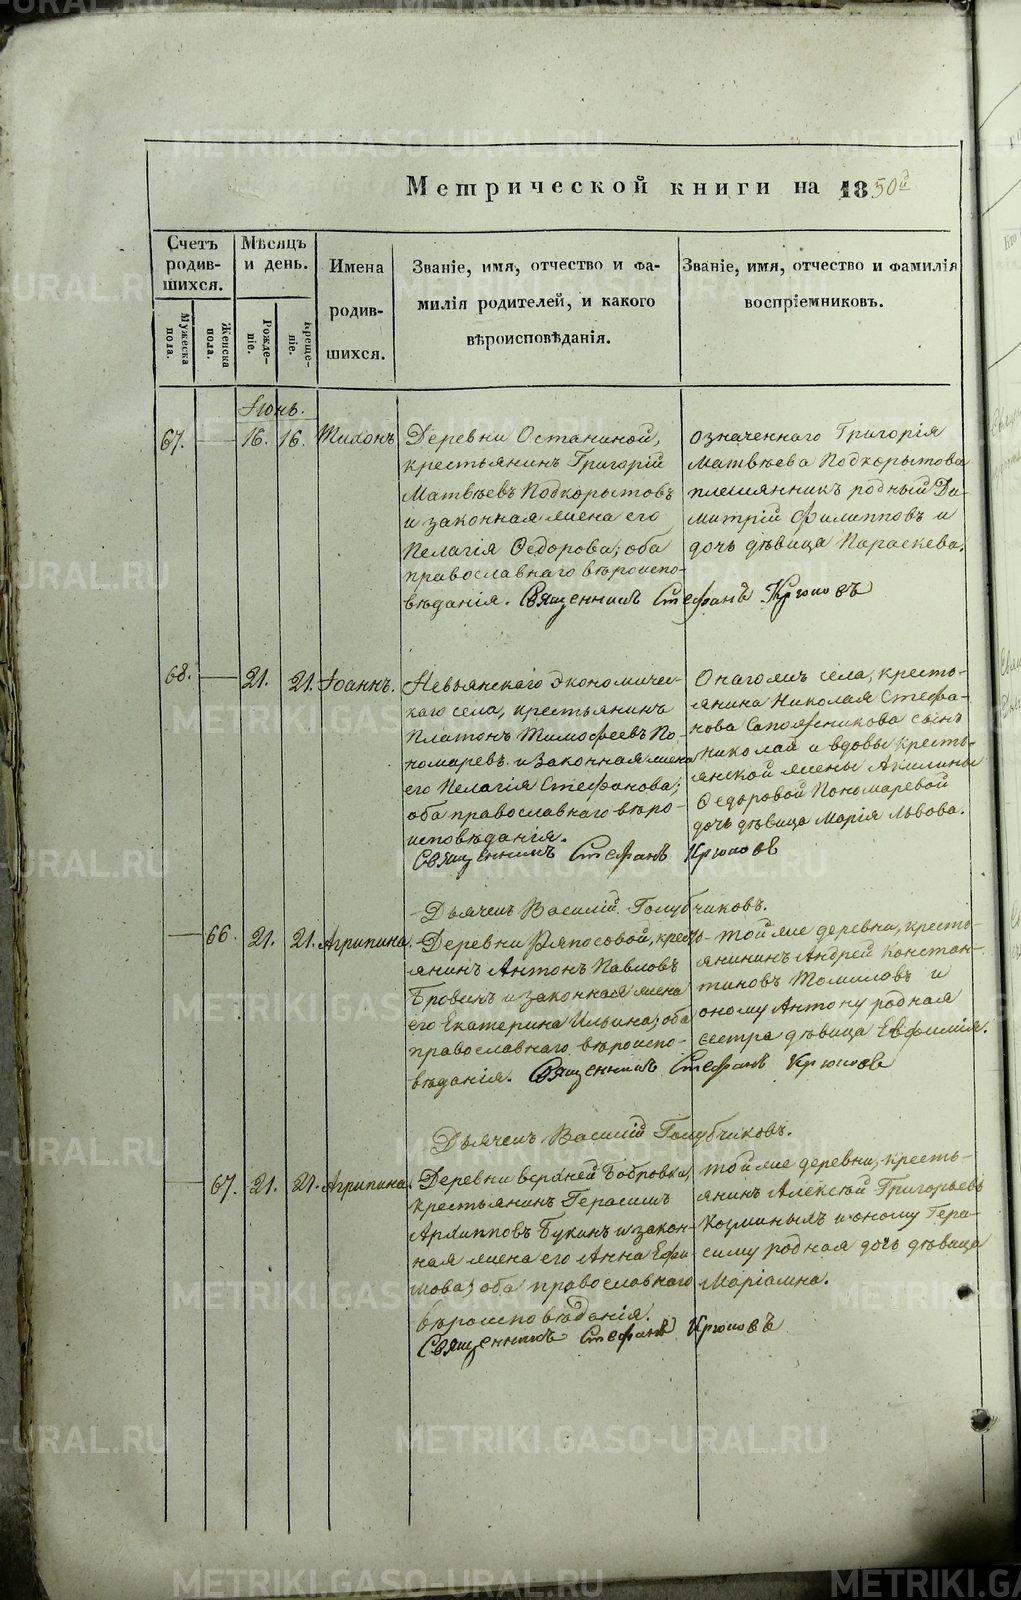 Метрической книги на 1850й
Счетъ родив- шихся.
Мѣсяцъ и день.
Имена родив- шихся.
Званіе, имя, отчество и фа-
милія родителей, и какого
вѣроисповѣданія.
Званіе, имя, отчество и фамилія
воспріемниковъ.
Мужеска пола.
Женска пола.
Рожде- ніе.
Креще- ніе.
Іюнь.
67. 16. 16. Тихонъ
Деревни Останиной,
крестьянинъ Григорій
Матвѣевъ Подкорытовъ
и законная жена его
Пелагія Ѳедорова; оба
православнаго вѣроиспо-
вѣданія. Священникъ Стефанъ Крюковъ
означеннаго Григорія
Матвѣева Подкорытова
племянникъ родный Ди-
митрій Филипповъ и
дочь дѣвица Параскева.
68. 21. 21. Іоаннъ.
Невьянскаго экономичес-
каго села, крестьянинъ
Платонъ Тимофеевъ По-
номаревъ и законная жена
его Пелагія Стефанова;
оба православнаго вѣро-
исповѣданія.
Священникъ Стефанъ Крюковъ
Онагожъ села, кресть-
янина Николая Стефа-
нова Сапожникова сынъ
Николай и вдовы кресть-
янской жены Акилины
Ѳедоровой Пономаревой
дочь дѣвица Марія Львова.
Дьячекъ Василій Голубчиковъ.
66. 21. 21. Агрипина.
Деревни Ряпосовой, крест-
янинъ Антонъ Павловъ
Бровинъ и законная жена
его Екатерина Ильина; оба
православнаго вѣроиспо-
вѣданія. Священникъ Стефанъ Крюковъ
тойже деревни, кресть-
янинъ Андрей Констан-
тиновъ Томиловъ и
оному Антону родная
сестра дѣвица Евфимія.
Дьячекъ Василій Голубчиковъ.
67. 21. 21. Агрипина.
Деревни верхней Бобровки,
крестьянинъ Герасимъ
Архипповъ Букинъ и закон-
ная жена его Анна Ефи-
мова; оба православнаго
вѣроисповѣданія.
Священникъ Стефанъ Крюковъ
тойже деревни, кресть-
янинъ Алексѣй Григорьевъ
Козминыхъ и оному Гера-
симу родная дочь дѣвица
Маріамна.
METRIKI.GASO-URAL.RU